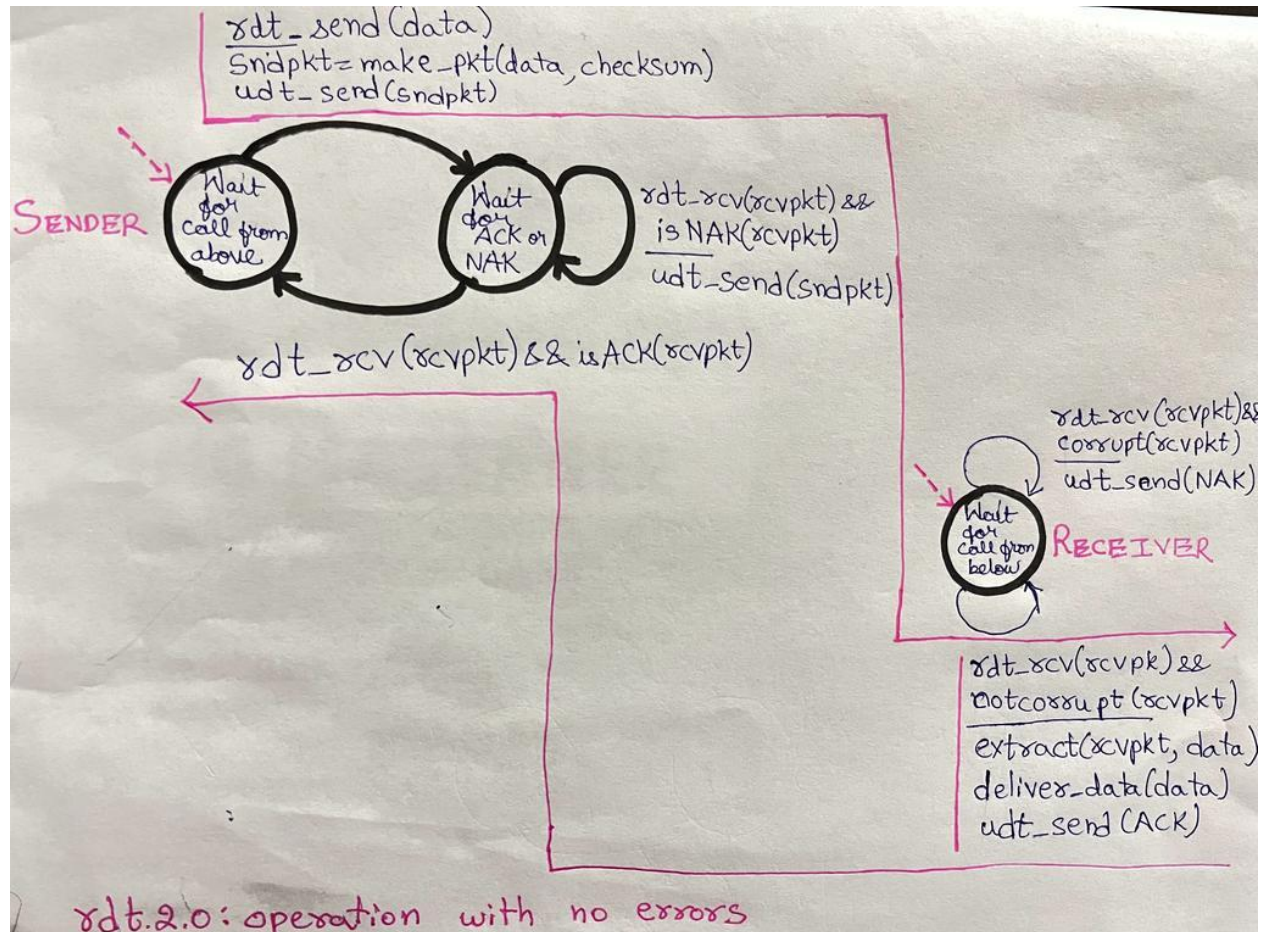 rdt_send(data)
sndpkt=make_pkt(data, checksum)
udt_send(sndpkt)
SENDER
Wait
for
call from
above
Wait
for
ACK or
NAK
rdt_rcv(rcvpkt) &&
isNAK(rcvpkt)
udt_send(sndpkt)
rdt_rcv(rcvpkt) && isACK(rcvpkt)
rdt_rcv(rcvpkt)&&
corrupt(rcvpkt)
udt_send(NAK)
Wait
for
call from
below
RECEIVER
rdt_rcv(rcvpk) &&
notcorrupt(rcvpkt)
extract(rcvpkt, data)
deliver_data(data)
udt_send(ACK)
rdt.2.0: operation with no errors